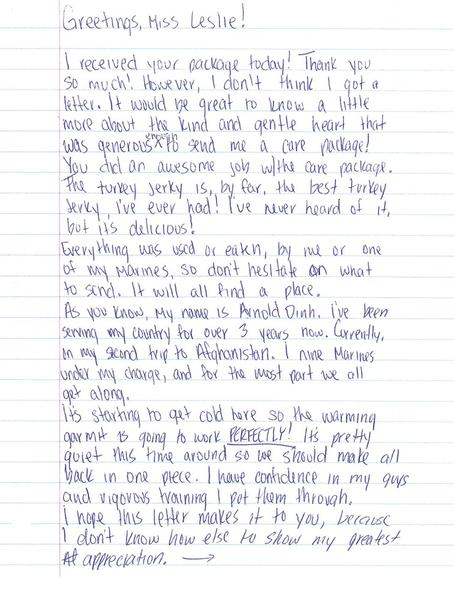 Greetings, Miss Leslie!
I received your package today! Thank you
so much! However, I don't think I got a
letter. It would be great to know a little
more about the kind and gentle heart that
was generous enough to send me a care package!
You did an awesome job w/the care package.
The turkey jerky is, by far, the best turkey
jerky, I've ever had! I've never heard of it,
but it's delicious!
Everything was used or eaten, by me or one
of my Marines, so don't hesitate on what
to send. It will all find a place.
As you know, my name is Arnold Dinh. I've been
serving my country for over 3 years now. Currently,
on my second trip to Afghanistan. I nine Marines
under my charge, and for the most part we all
get along.
It's starting to get cold here so the warming
garmit is going to work PERFECTLY! It's pretty
quiet this time around so we should make all
back in one piece. I have confidence in my guys
and vigorous training I put them through.
I hope this letter makes it to you, because
I don't know how else to show my greatest
appreciation. →